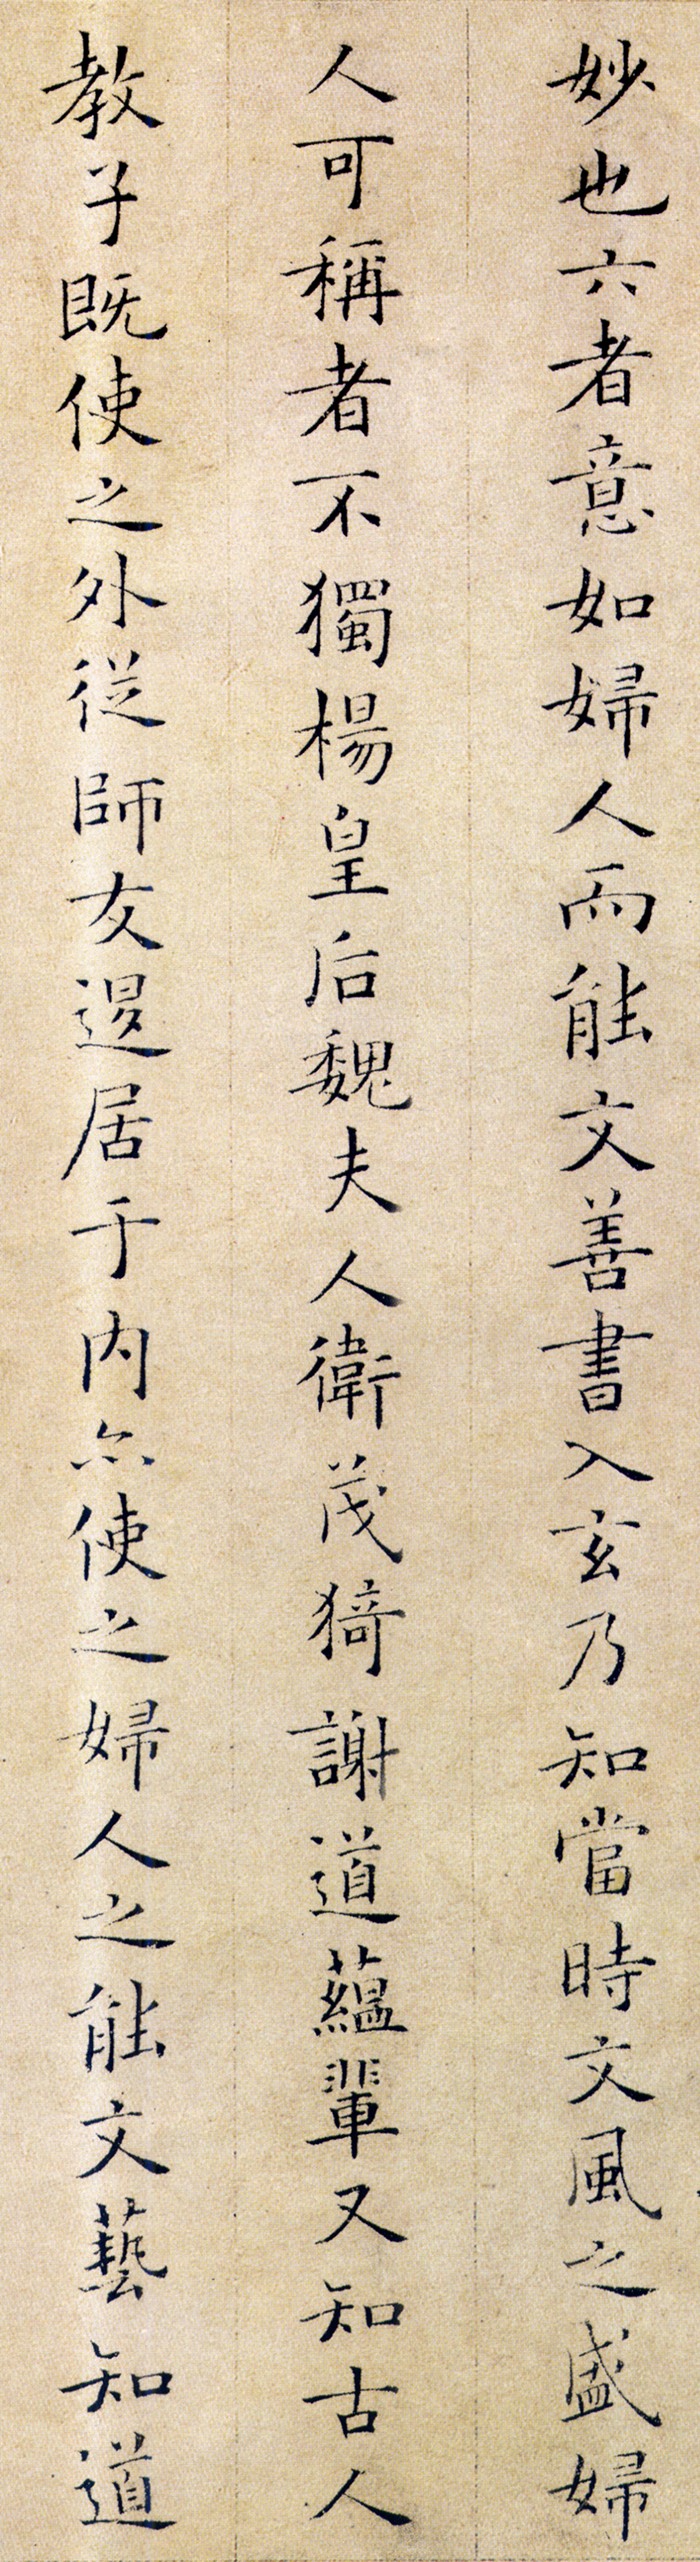 妙也六者意如婦人而能文善書入玄乃知當時文風之盛婦
人可稱者不獨楊皇后魏夫人衛茂猗謝道蘊輩又知古人
教子既使之外從師友退居于内亦使之婦人之能文藝知道